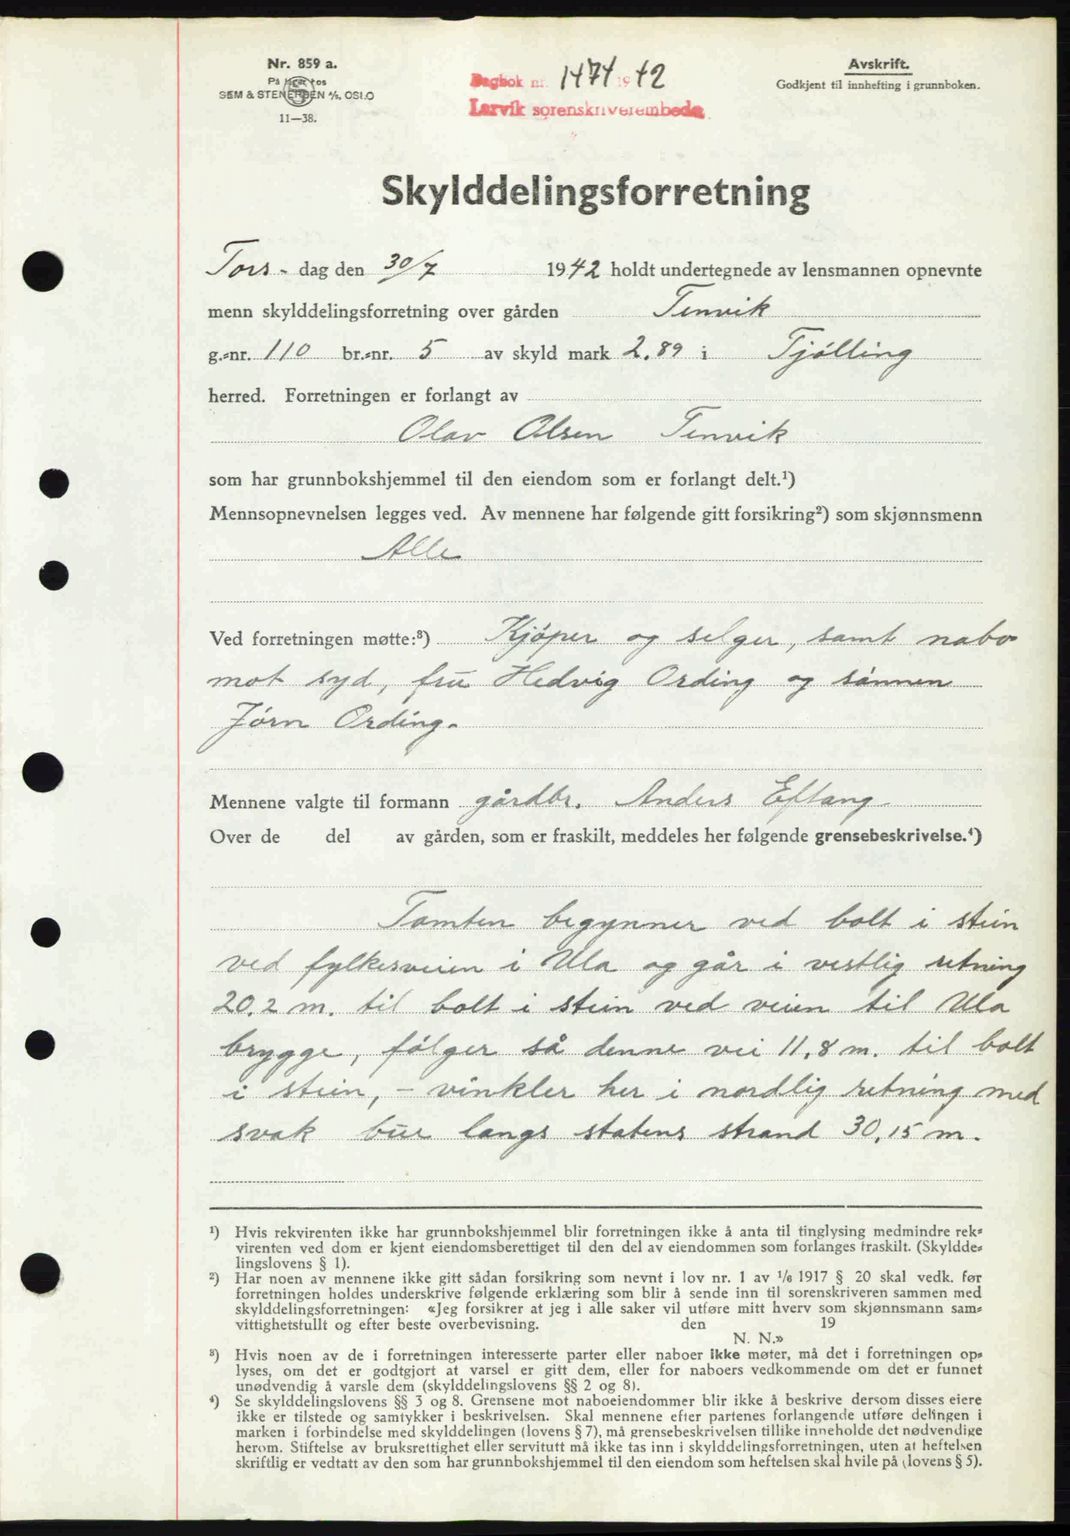 Nr. 859 a.
På lager hos
SEM & STENERSEN A/S, OSLO
11—38.
Dagbok nr. 1474 1942
Larvik sorenskriverembede
Avskrift.
Godkjent til innhefting i grunnboken.
Skylddelingsforretning
Tors- dag den 30/7 1942 holdt undertegnede av lensmannen opnevnte
menn skylddelingsforretning over gården Tenvik
g.=nr. 110 br.=nr. 5 av skyld mark 2.89 i Tjølling
herred. Forretningen er forlangt av
Olav Olsen Tenvik
som har grunnbokshjemmel til den eiendom som er forlangt delt.¹)
Mennsopnevnelsen legges ved. Av mennene har følgende gitt forsikring²) som skjønnsmenn
Alle
Ved forretningen møtte:³) Kjøper og selger, samt nabo
mot syd, fru Hedvig Ording og sønnen
Jørn Ording.
Mennene valgte til formann gårdbr. Anders Eftang
Over de del av gården, som er fraskilt, meddeles her følgende grensebeskrivelse.⁴)
Tomten begynner ved bolt i stein
ved fylkesveien i Ula og går i vestlig retning
20.2 m. til bolt i stein ved veien til Ula
brygge, følger så denne vei 11,8 m. til bolt
i stein, – vinkler her i nordlig retning med
svak bue langs statens strand 30,15 m.
¹) Hvis rekvirenten ikke har grunnbokshjemmel blir forretningen ikke å anta til tinglysing medmindre rek=
virenten ved dom er kjent eiendomsberettiget til den del av eiendommen som forlanges fraskilt. (Skyldde=
lingslovens § 1).
²) Har noen av mennene ikke gitt sådan forsikring som nevnt i lov nr. 1 av ¹/6 1917 § 20 skal vedk. før
forretningen holdes underskrive følgende erklæring som blir å sende inn til sorenskriveren sammen med
skylddelingsforretningen: «Jeg forsikrer at jeg i alle saker vil utføre mitt hverv som skjønnsmann sam=
vittighetsfullt og efter beste overbevisning. den 19
N. N.»
³) Hvis noen av de i forretningen interesserte parter eller naboer ikke møter, må det i forretningen op=
lyses, om det er godtgjort at varsel er gitt dem, eller for naboers vedkommende om det er funnet
unødvendig å varsle dem (skylddelingslovens §§ 2 og 8).
⁴) Se skylddelingslovens §§ 3 og 8. Grensene mot naboeiendommer blir ikke å beskrive dersom disses eiere
ikke er tilstede og samtykker i beskrivelsen. Skal mennene efter partenes forlangende utføre delingen i
marken i forbindelse med skylddelingen (lovens § 7), må grensebeskrivelsen tillike inneholde det nødvendige
herom. Stiftelse av bruksrettighet eller servitutt må ikke tas inn i skylddelingsforretningen, uten at heftelsen
skriftlig er vedtatt av den som har grunnbokshjemmel til den eiendom som heftelsen skal hvile på (lovens § 5).